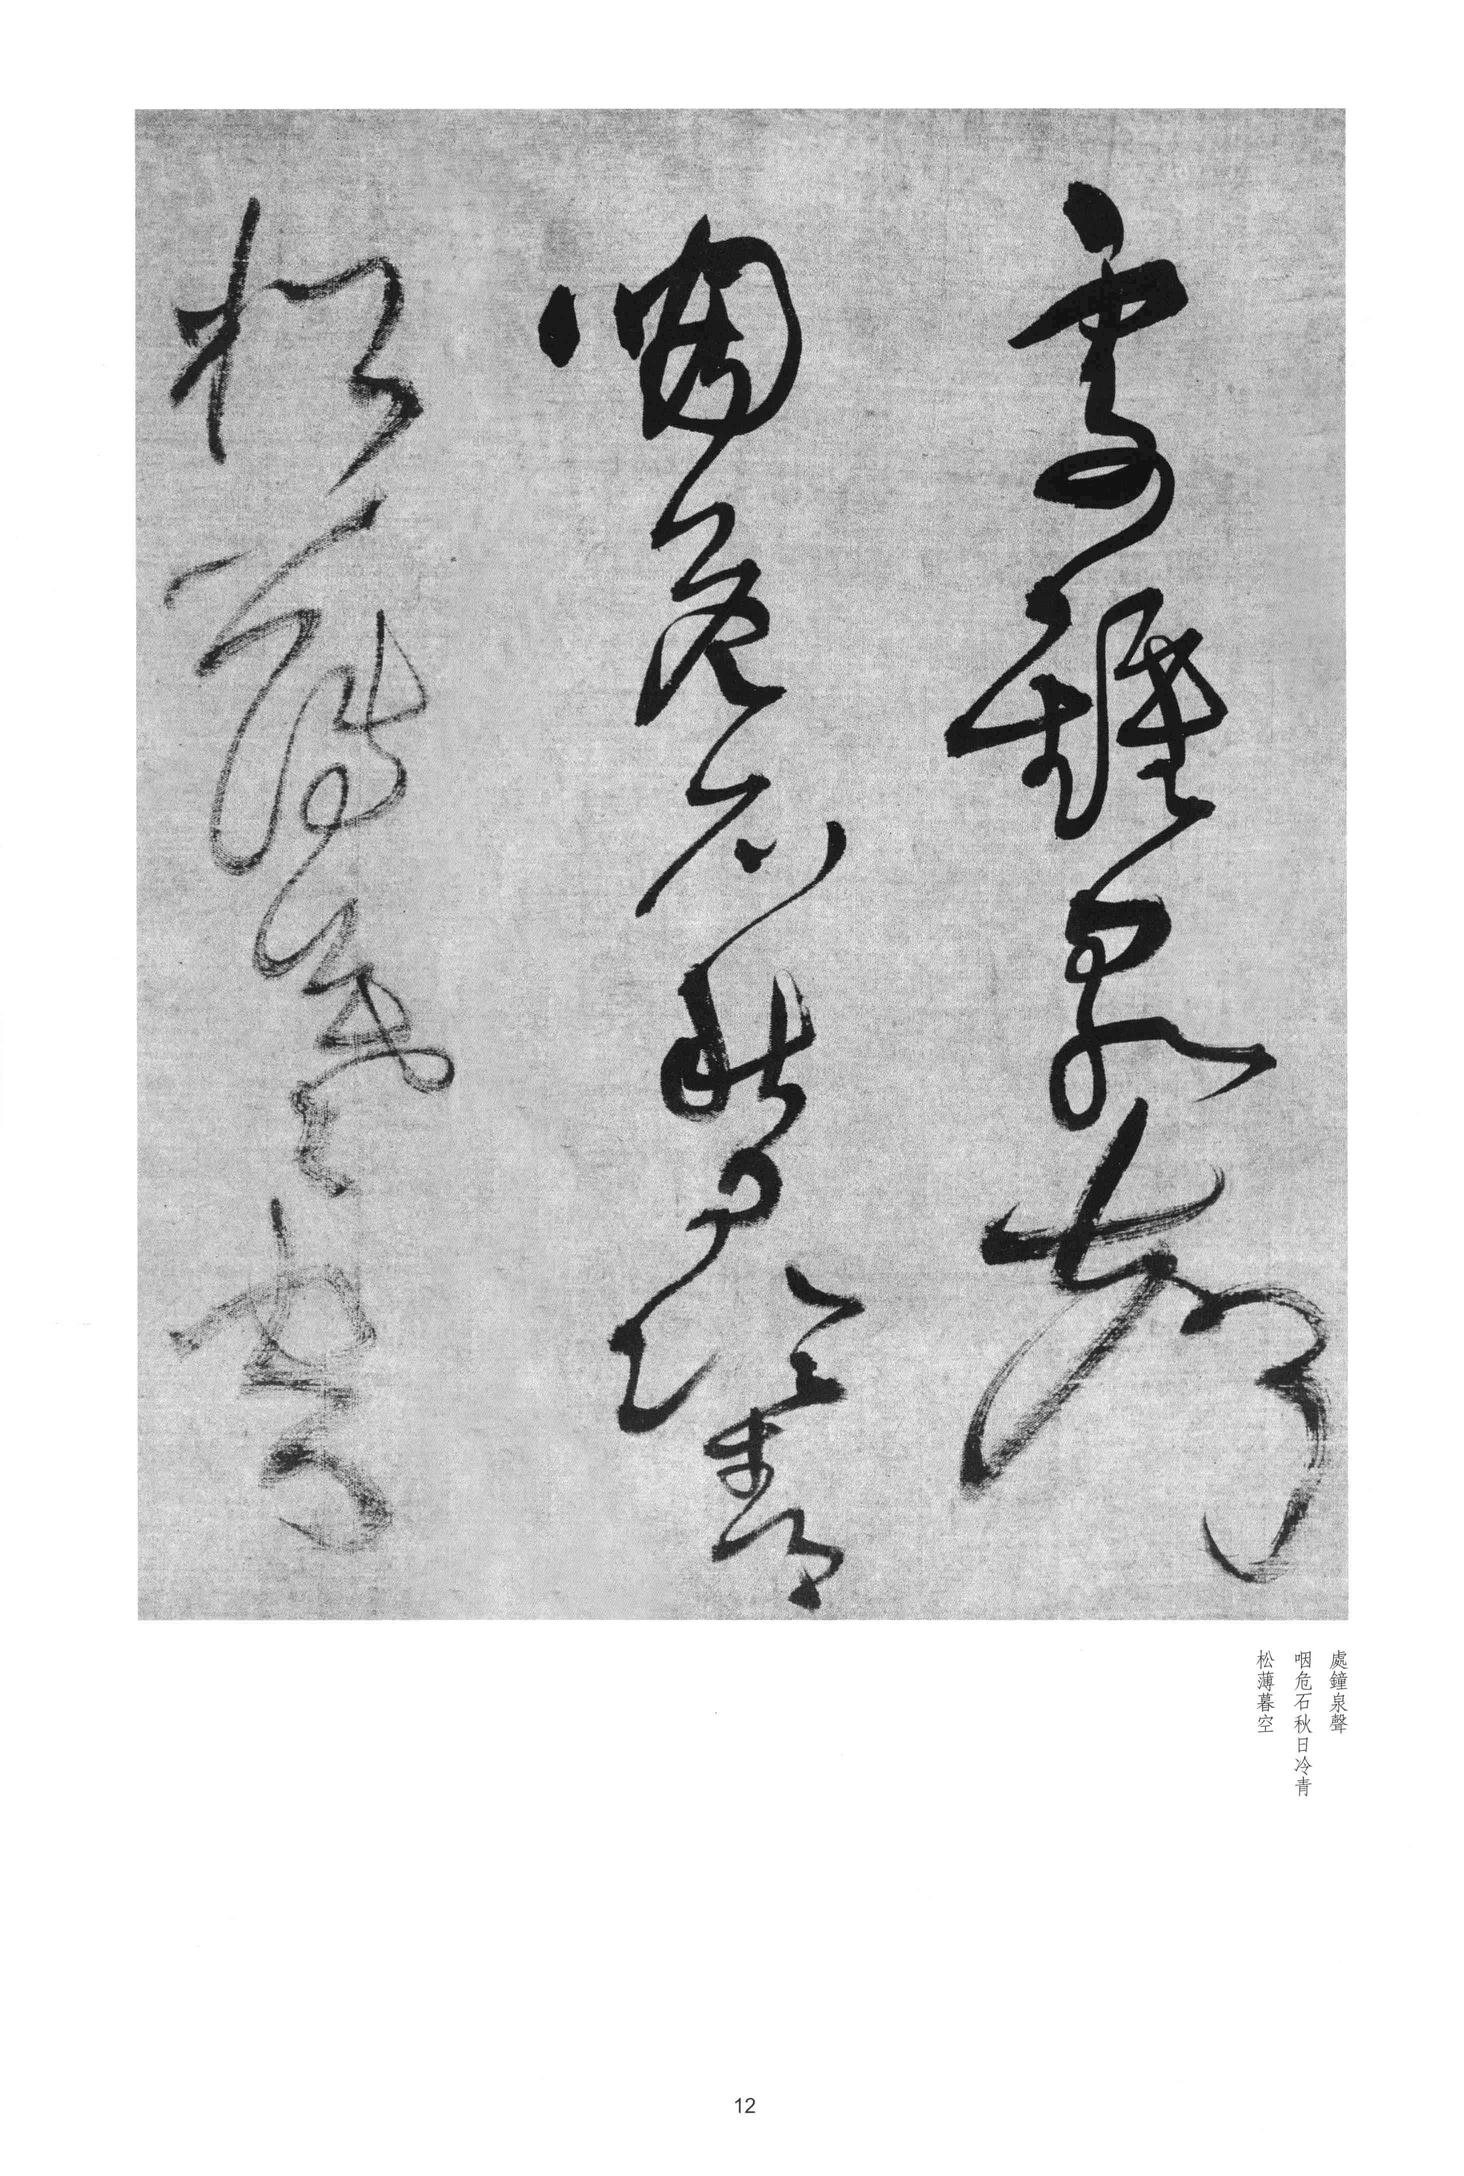 處鐘泉聲
咽危石秋日冷青
松薄暮空
處鐘泉聲
咽危石秋日冷青
松薄暮空
12